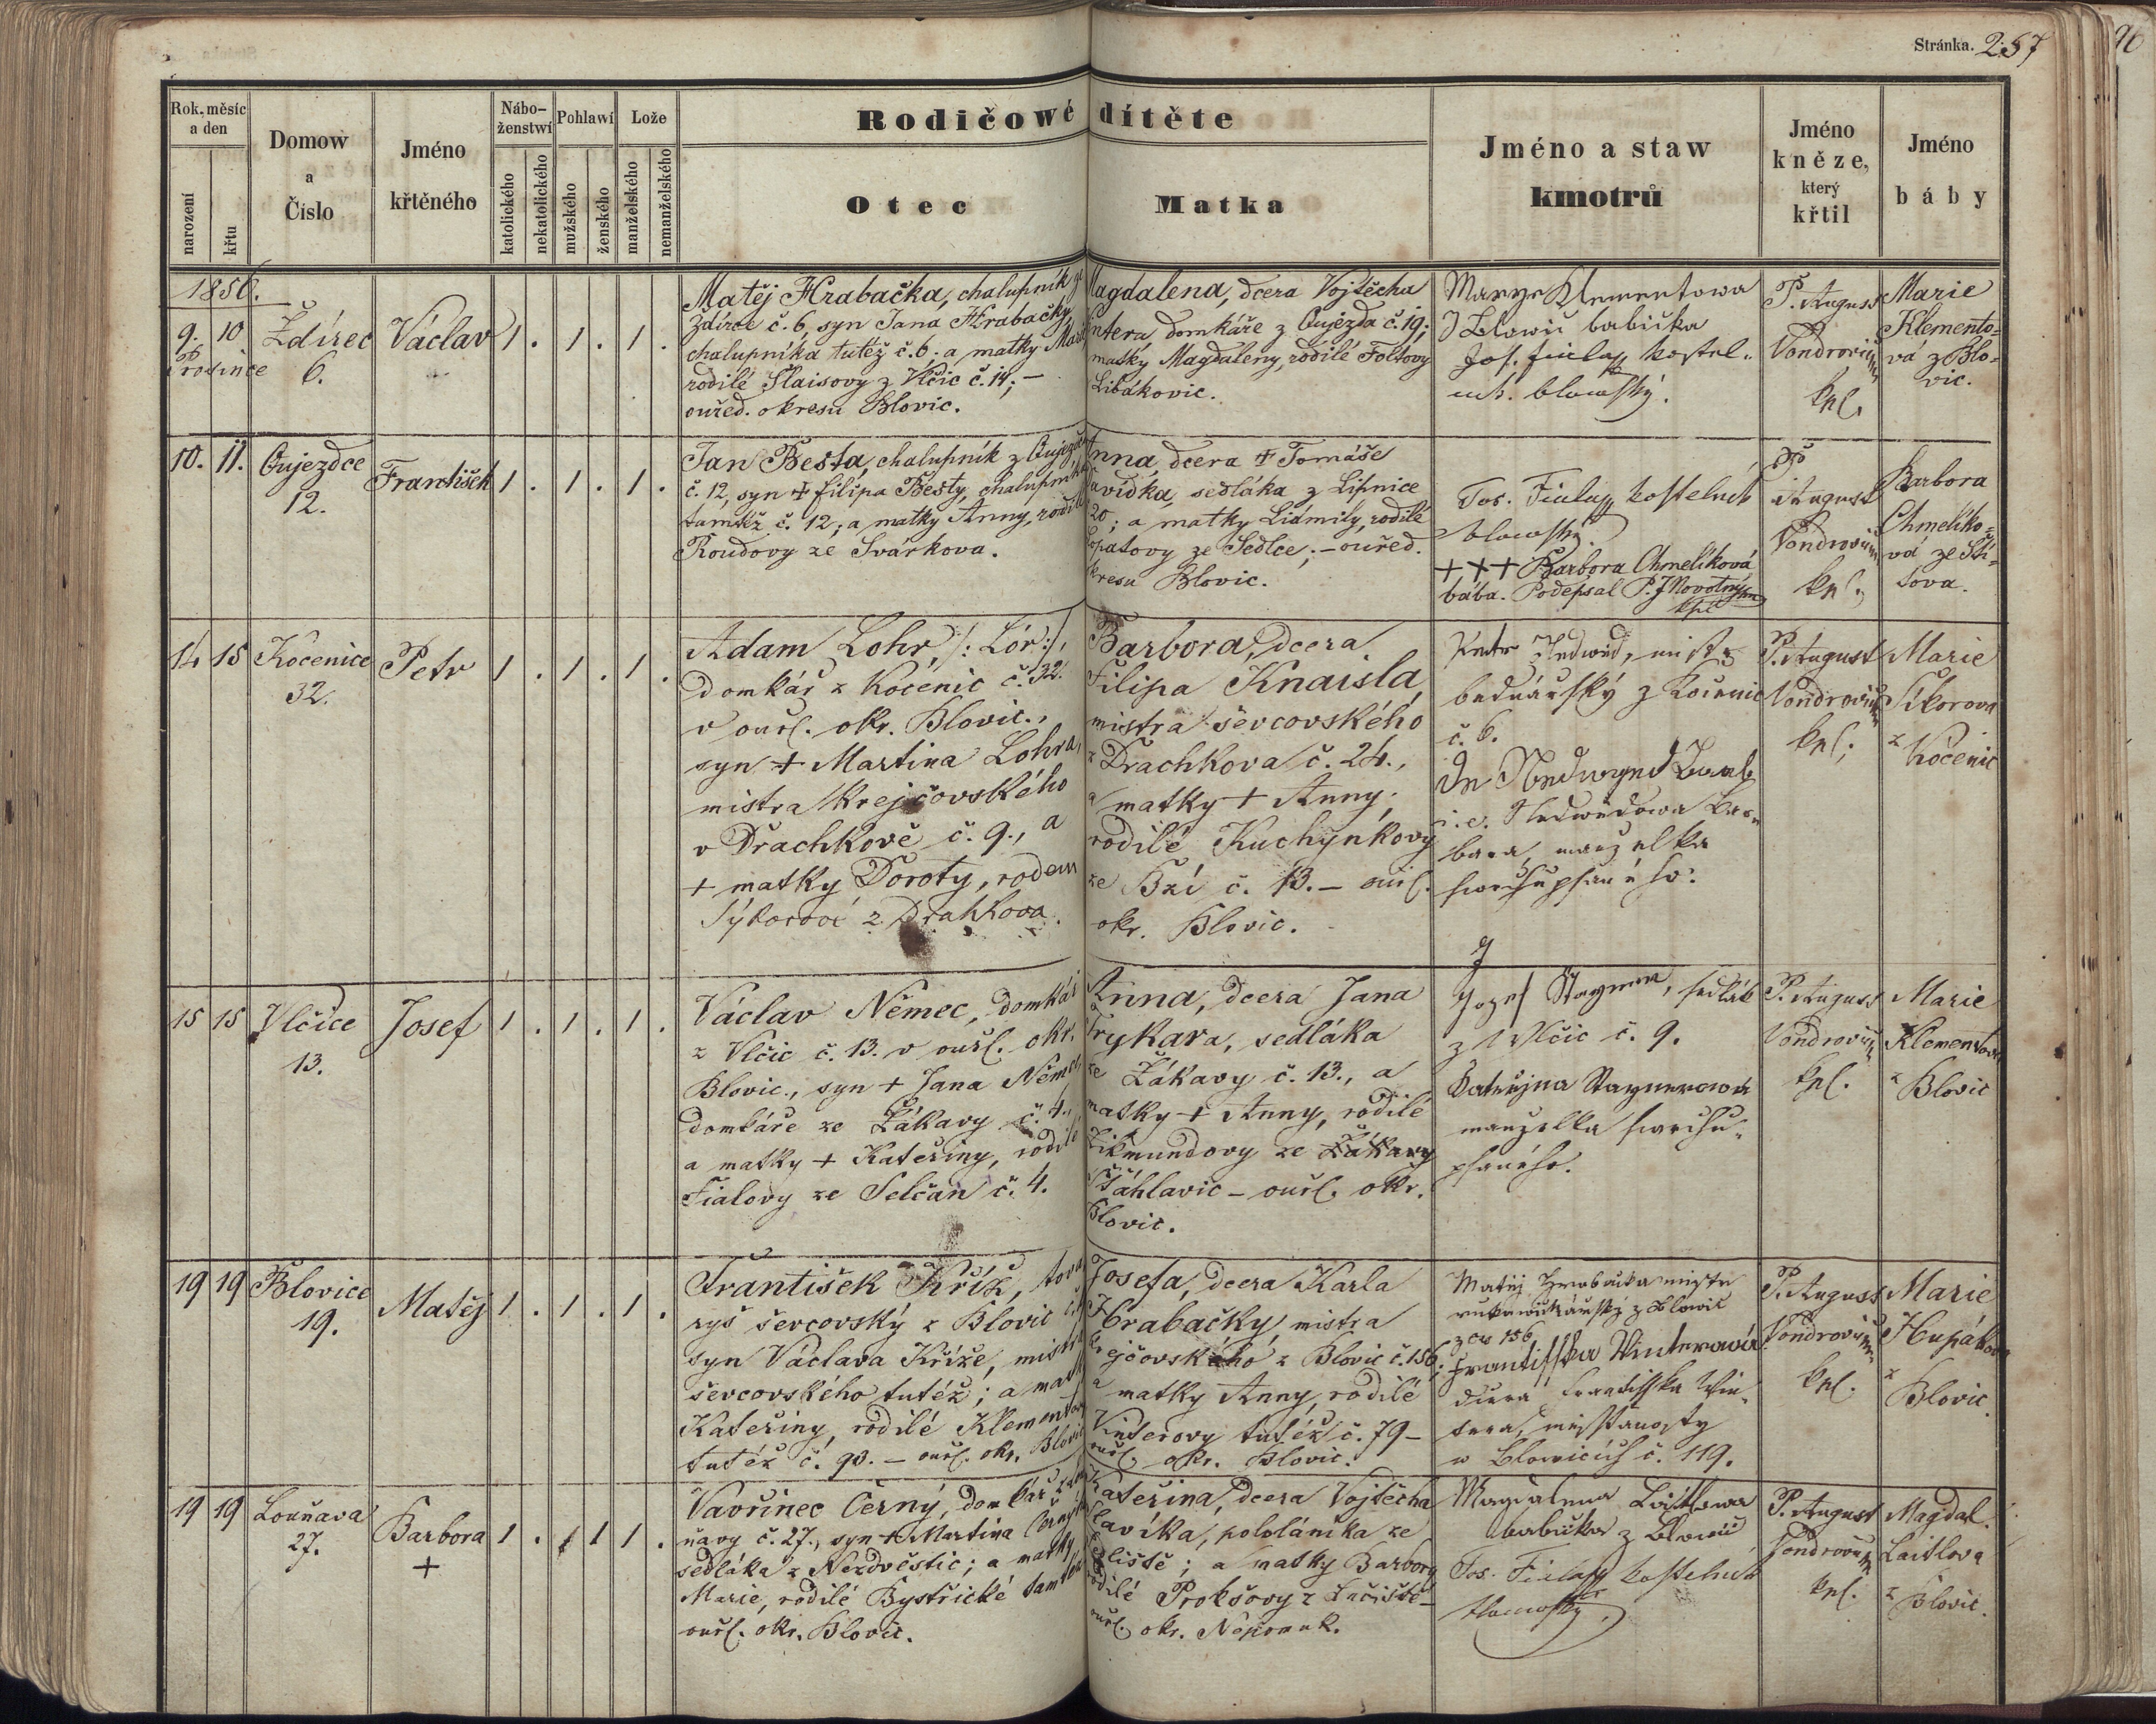 Stránka. 257
Rok, měsíc
a den
narození
křtu
Domow
a
Číslo
Jméno
křtěného
Nábo-
ženstwí
katolického
nekatolického
Pohlawí
mužského
ženského
Lože
manželského
nemanželského
Rodičowé dítěte
Otec
Matka
Jméno a staw
kmotrů
Jméno
kněze,
který
křtil
Jméno
báby
1856.
9. 10
Prosince
Ždírec
6.
Václav
1 . 1 . 1 .
Matěj Hrabačka, chalupník ze
Ždírce č. 6, syn Jana Hrabačky,
chalupníka tutéž č. 6; a matky
rodilé Šlaisovy z Vlčic č. 14; –
ouřed. okresu Blovic.
Magdalena, dcera Vojtěcha
domkáře z Oujezda č. 19;
matky Magdaleny, rodilé
Libákovic.
Marye Klementowa
z Blowic babička
Jos. Fiala kostel-
ník blowský.
P. August
Vondrovic
kpl.
Marie
Klemento-
vá z Blo-
vic.
10. 11.
Oujezdce
12.
František
1 . 1 . 1 .
Jan Bešta, chalupník z
č. 12, syn + Filipa Bešty, chalupníka
tamtéž č. 12; a matky Anny, rodilé
Roudovy ze Svárkova.
Anna, dcera + Tomáše
sedláka z Lipnice
20; a matky Lidmily, rodilé
ze Sedlce; – ouřed.
okresu Blovic.
Jos. Fiala kostelník
blowský.
+++ Barbora Chmelíková
bába. Podepsal P. J. Novotný
kpl.
P.
August
kpl.
Barbora
Chmelíko-
vá ze Ští-
tova.
14 15
Kocenice
32.
Petr
1 . 1 . 1 .
Adam Lohr /: Lór :/,
domkář z Kocenic č. 32.
v ouř. okr. Blovic.,
syn + Martina Lohra,
mistra krejčovského
v Drachkově č. 9., a
+ matky Doroty, rodem
Sýkorové z Drahkova.
Barbora, dcera
Filipa Knaisla
mistra ševcovského
z Drachkova č. 24.,
a matky + Anny,
rodilé Kuchynkovy
ze Bzí č. 13. – ouř.
okr. Blovic.
Petr Nedwěd, mistr
bednářský z Kocenic
č. 6.
i. e. Nedwědowa Bar-
bara, manželka
swrchupsaného.
P. August
Vondrovic
kpl.
Marie
Síkorova
z
Kocenic
15 15
Vlčice
13.
Josef
1 . 1 . 1 .
Václav Němec, domkář
z Vlčic č. 13. v ouř. okr.
Blovic., syn + Jana Němce
domkáře ze Žákavy č. 4.,
a matky + Kateřiny, rodilé
Fialovy ze Selčan č. 4.
Anna, dcera Jana
Trykara, sedláka
ze Žákavy č. 13., a
matky + Anny, rodilé
Zikmundovy ze
Štáhlavic – ouř. okr.
Blovic.
Jozef Stayner, sedlák
z Wlčic č. 9.
Kateřyna Staynerowá
manzelka swrchu-
psaného.
P. August
Vondrovic
kpl.
Marie
Klementova
z
Blovic
19 19
Blovice
19.
Matěj
1 . 1 . 1 .
František Kříž, tova-
ryš ševcovský z Blovic
syn Václava Kříže, mistra
ševcovského tutéž; a matky
Kateřiny, rodilé Klementovy
tutéž č. 90. – ouř. okr. Blovic
Josefa, dcera Karla
Hrabačky, mistra
krejčovského z Blovic č. 156;
a matky Anny, rodilé
Vinterovy tutéž č. 79 –
ouř. okr. Blovic.
Matěj Hrabačka mistr
rukawičkářský z Blowic
156
Frantisska Winterowá
dcera Frantisska Win-
tera, měsstianosty
w Blowicích č. 119.
P. August
Vondrovic
kpl.
Marie
Hupákova
z
Blovic.
19 19
Louňava
27.
Barbora
+
1 . 1 1 .
Vavřinec Černý, domkář z Lou-
ňavy č. 27., syn + Martina Černýho
sedláka z Nezdvěstic; a matky
Marie, rodilé Bystřické tamtéž
ouř. okr. Blovic.
Kateřina, dcera Vojtěcha
Slavíka, pololáníka ze
a matky Barbory
rodilé Prokšovy z
ouř. okr. Nepomuk.
Magdalena Laitlowa
babička z Blowic
Jos. Fiala kostelník
blowský.
P. August
Vondrovic
kpl.
Magdal.
Laitlova
z Blovic.